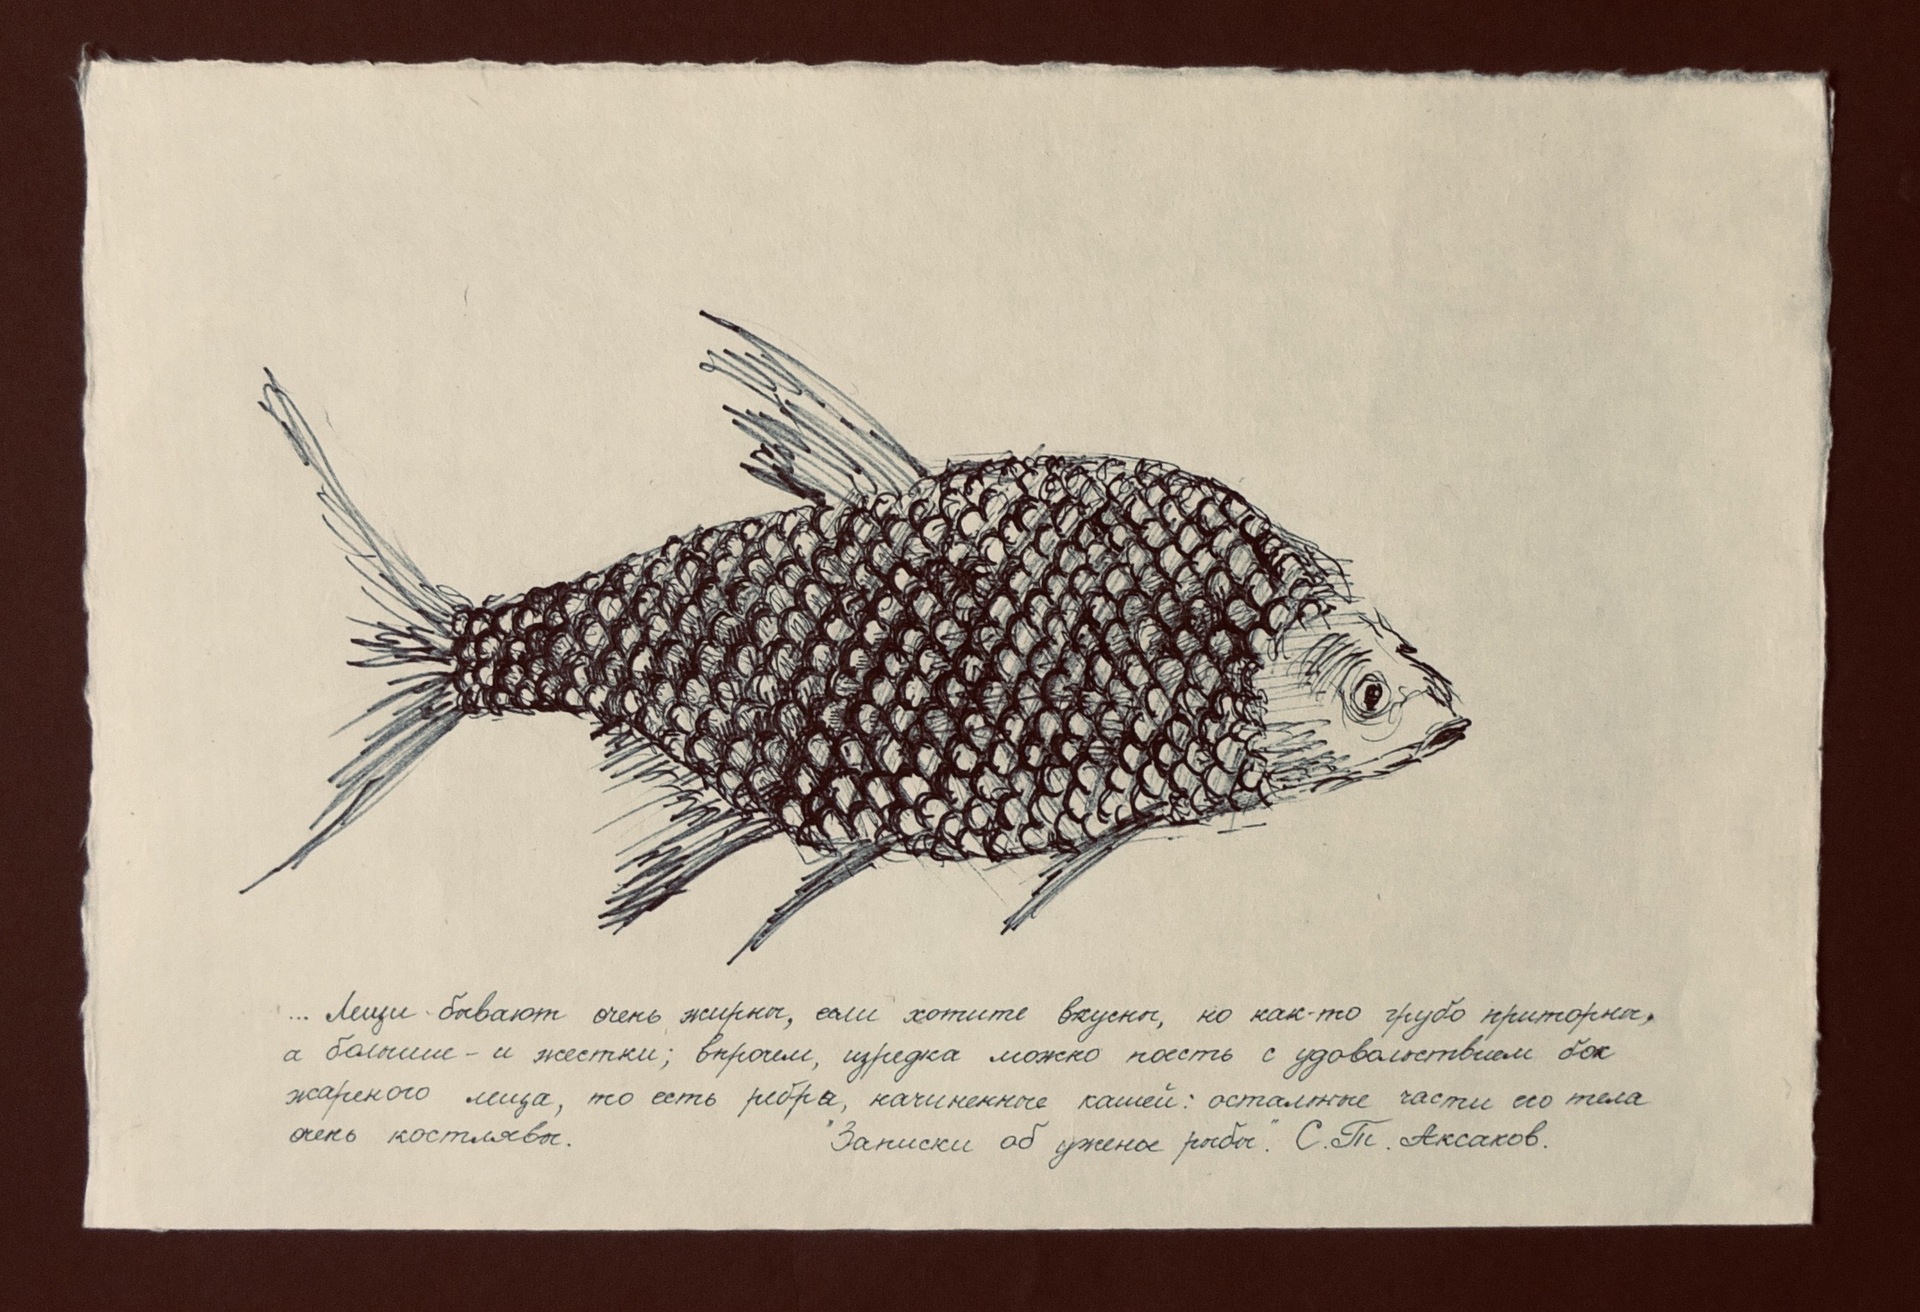 ... Лещи бывают очень жирны, если хотите вкусны, но как-то грубо приторны,
а большие - и жестки; впрочем, изредка можно поесть с удовольствием бок
жареного леща, то есть ребра, начиненные кашей: остальные части его тела
очень костлявы. "Записки об уженье рыбы". С.Т. Аксаков.